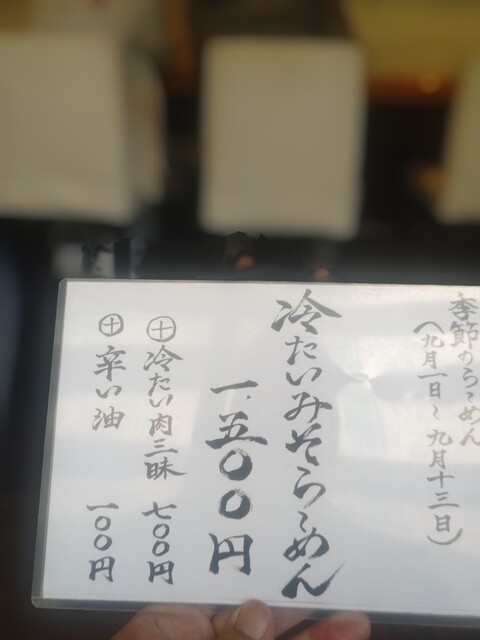 季節のらーめん
(九月一日~九月十三日)
冷たいみそらーめん
一、五〇〇円
㊉冷たい肉三昧 七〇〇円
㊉辛い油 一〇〇円